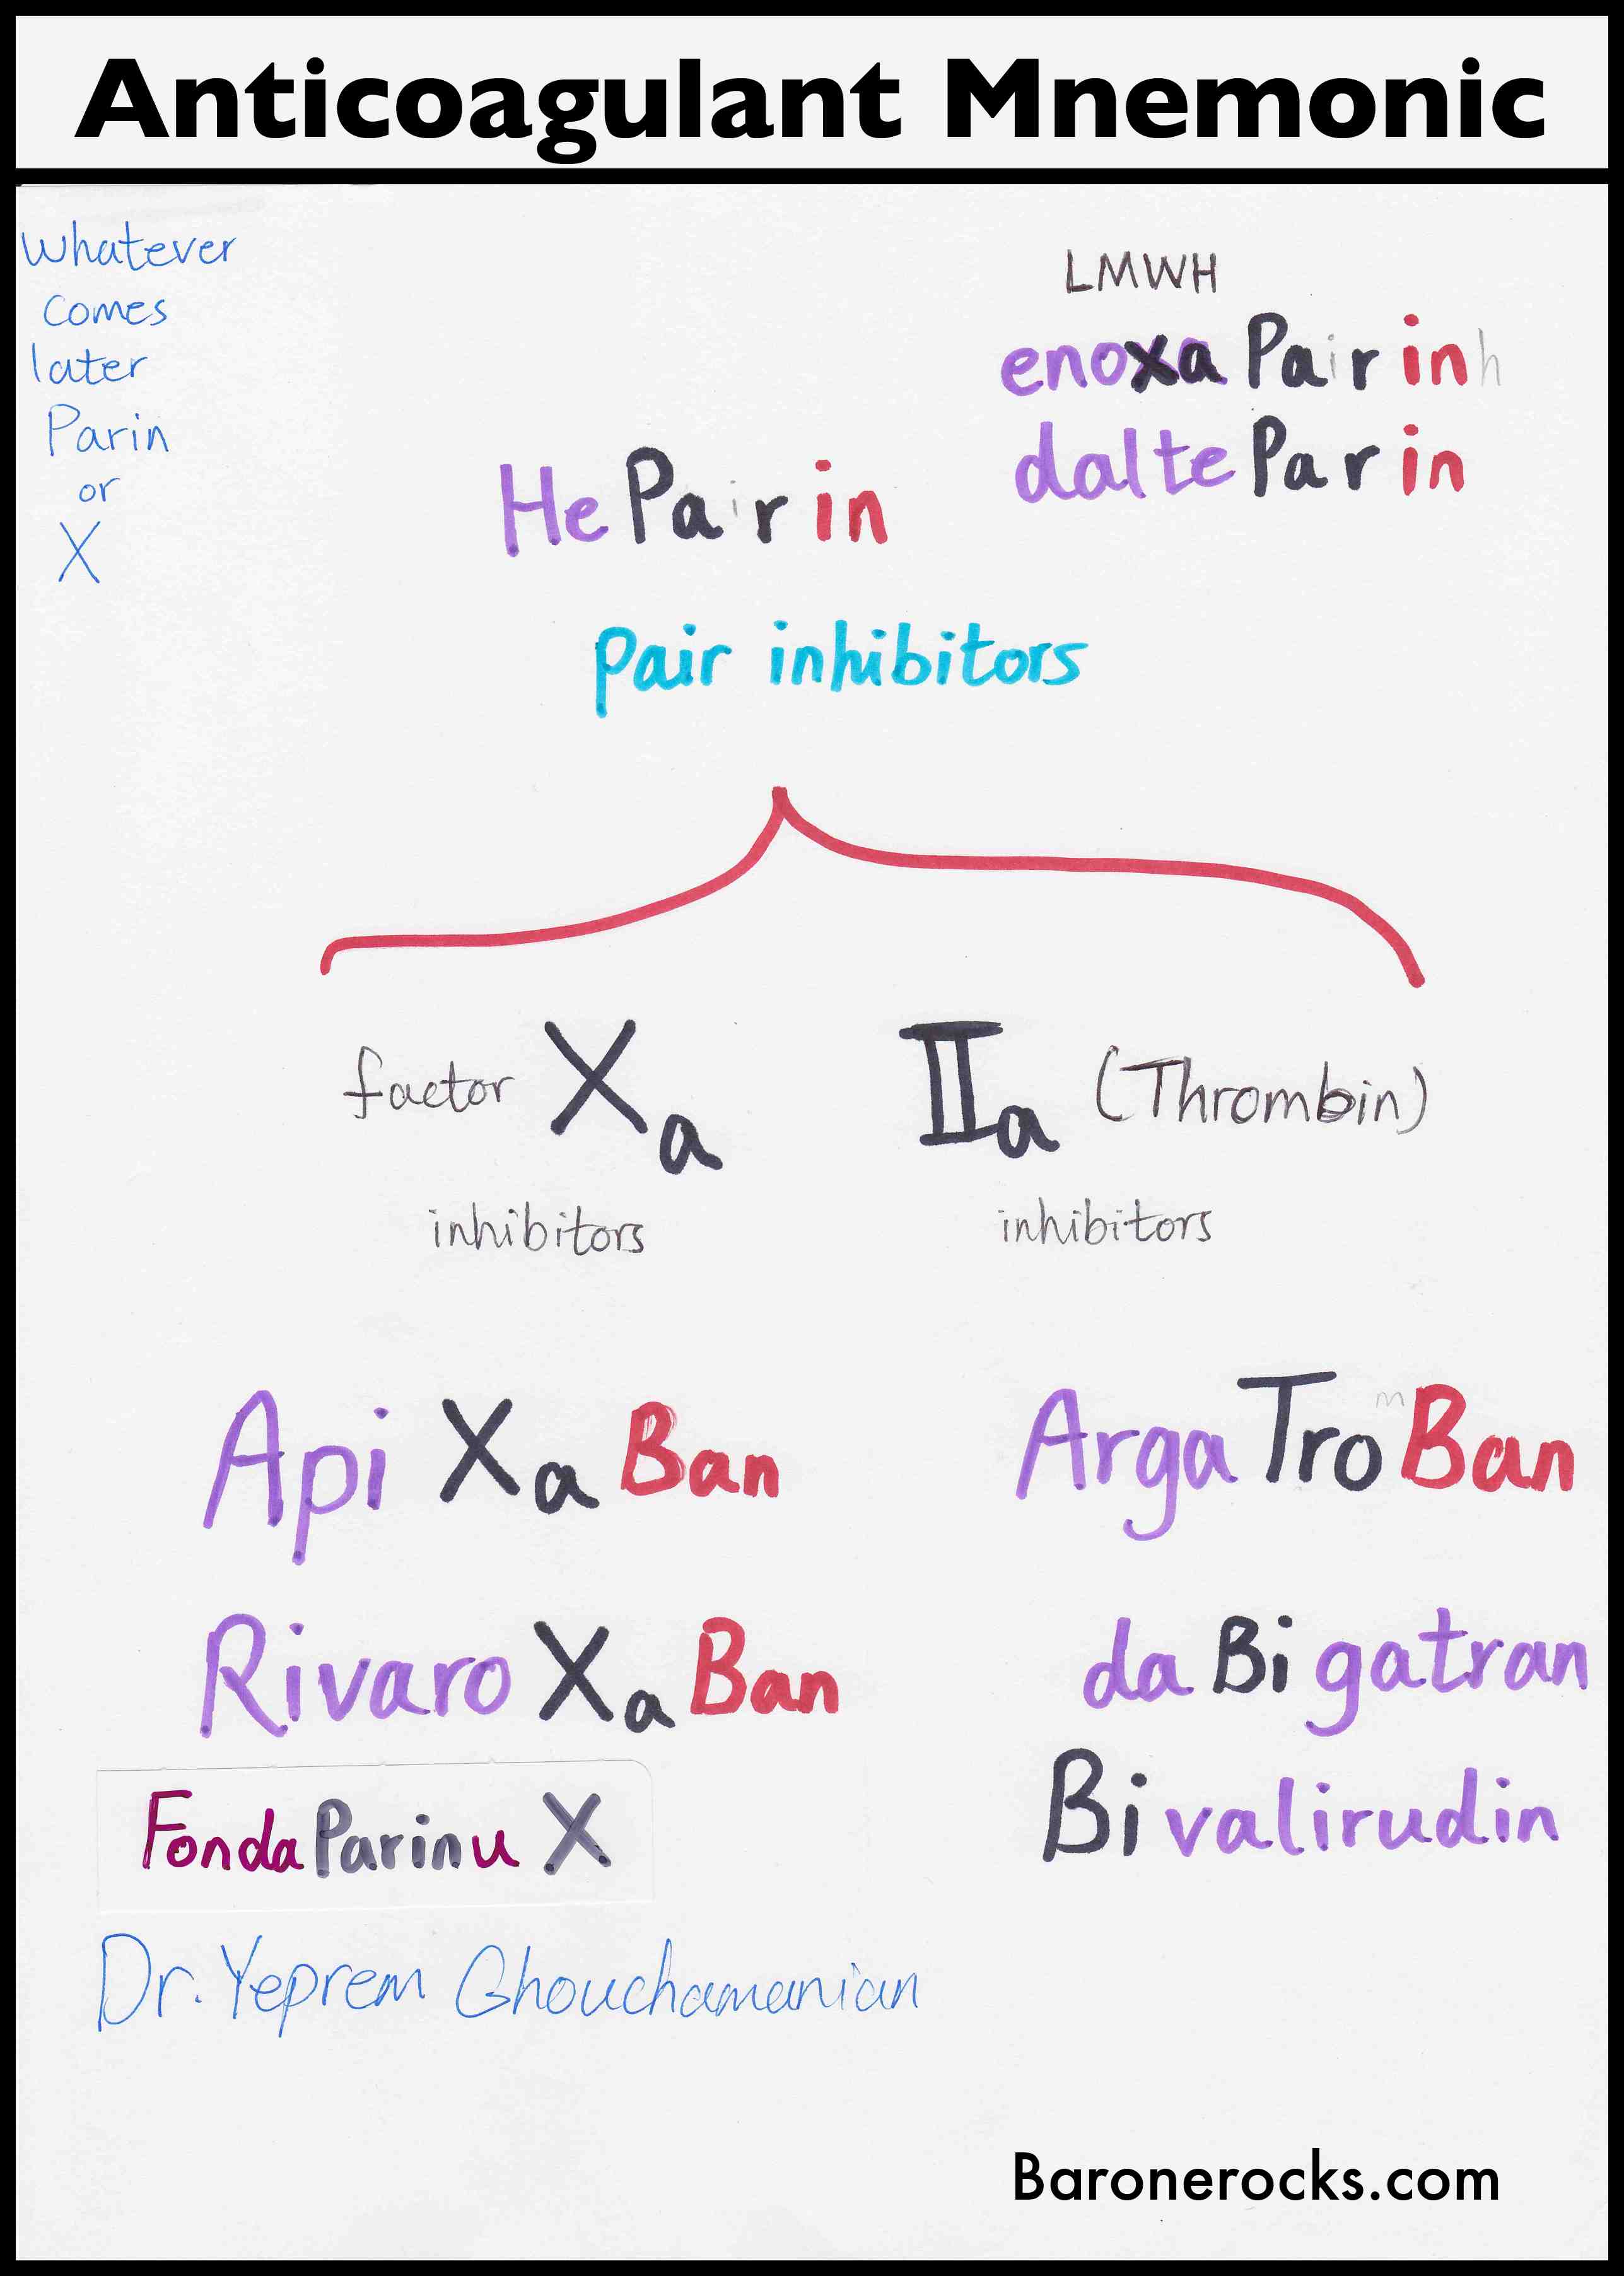 Anticoagulant Mnemonic
Whatever
comes
later
Parin
or
X
LMWH
enoxaPairinh
dalteParin
HePairin
pair inhibitors
factor Xa
inhibitors
IIa (Thrombin)
inhibitors
ApiXaBan
RivaroXaBan
FondaParinuX
ArgaTromBan
daBigatran
Bivalirudin
Dr. Yeprem Ghouchamanian
Baronerocks.com